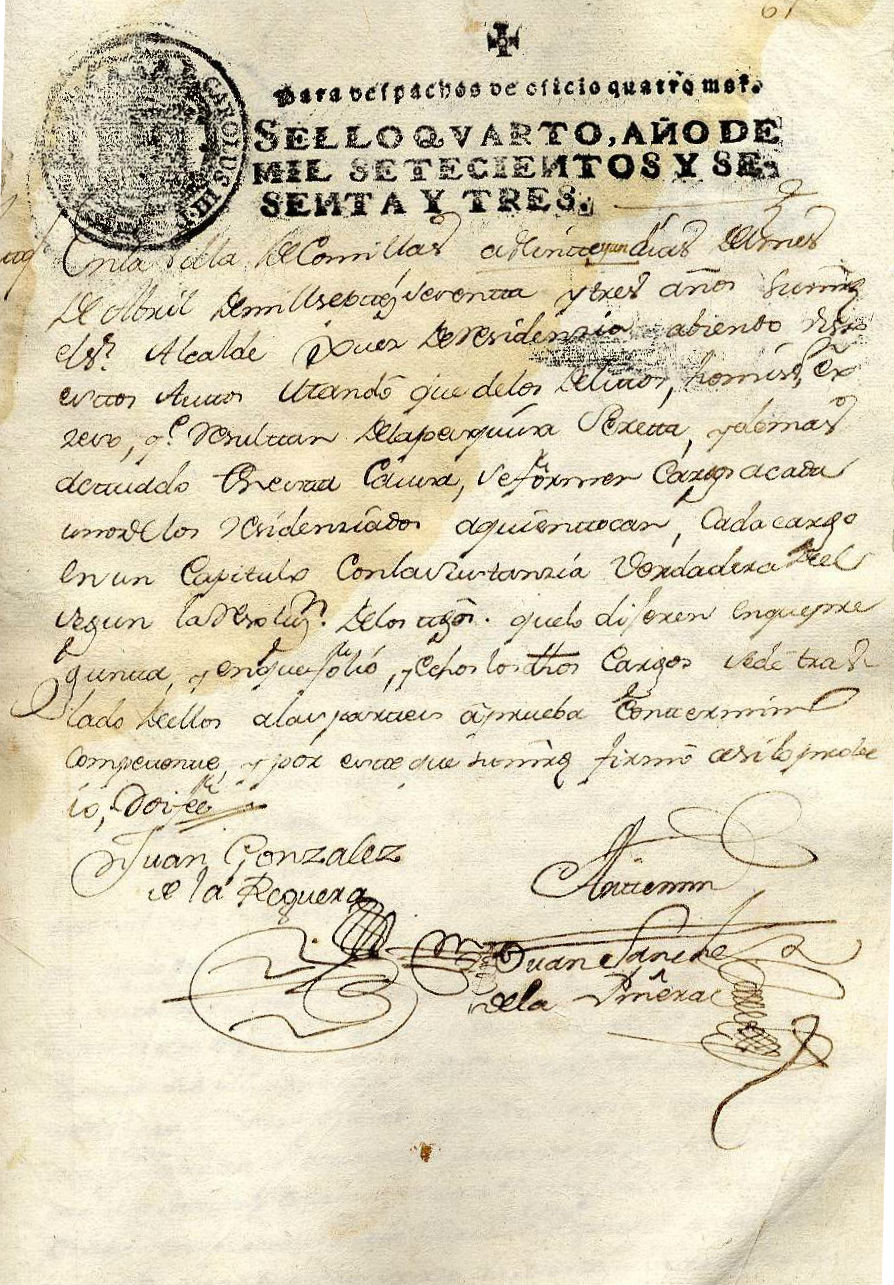 61
CAROLUS III
Para despachos de oficio quatro mrs.
SELLO QVARTO, AÑO DE
MIL SETECIENTOS Y SE-
SENTA Y TRES.
En la Villa de Comillas a Veinte y un dias del mes
de Abril de mill settēs sesenta y tres años su mrd
el sr. Alcalde Juez de residenzia abiendo visto
estos Autos Mandō que de los Delitos,
zeso, qe. resultan de la pesquisa secreta, y demas
actuado en esta Causa, se formen Cargos a cada
uno de los residenziados a quien tocan, Cada cargo
en un Capitulo Con la sustanzia Verdadera de el
segun la Desposizn. de los tgōs. que lo dizeren en que pre
gunta, y en que folio, y echos los dhos Cargos se de tras
lado de ellos a las partes a prueba Con termino
Competente, y por este que su mrd firmō asi lo probe
io, Doi fee
Juan Gonzalez
de la Reguera
Ante mi
Juan Sanchez
de la Piñera